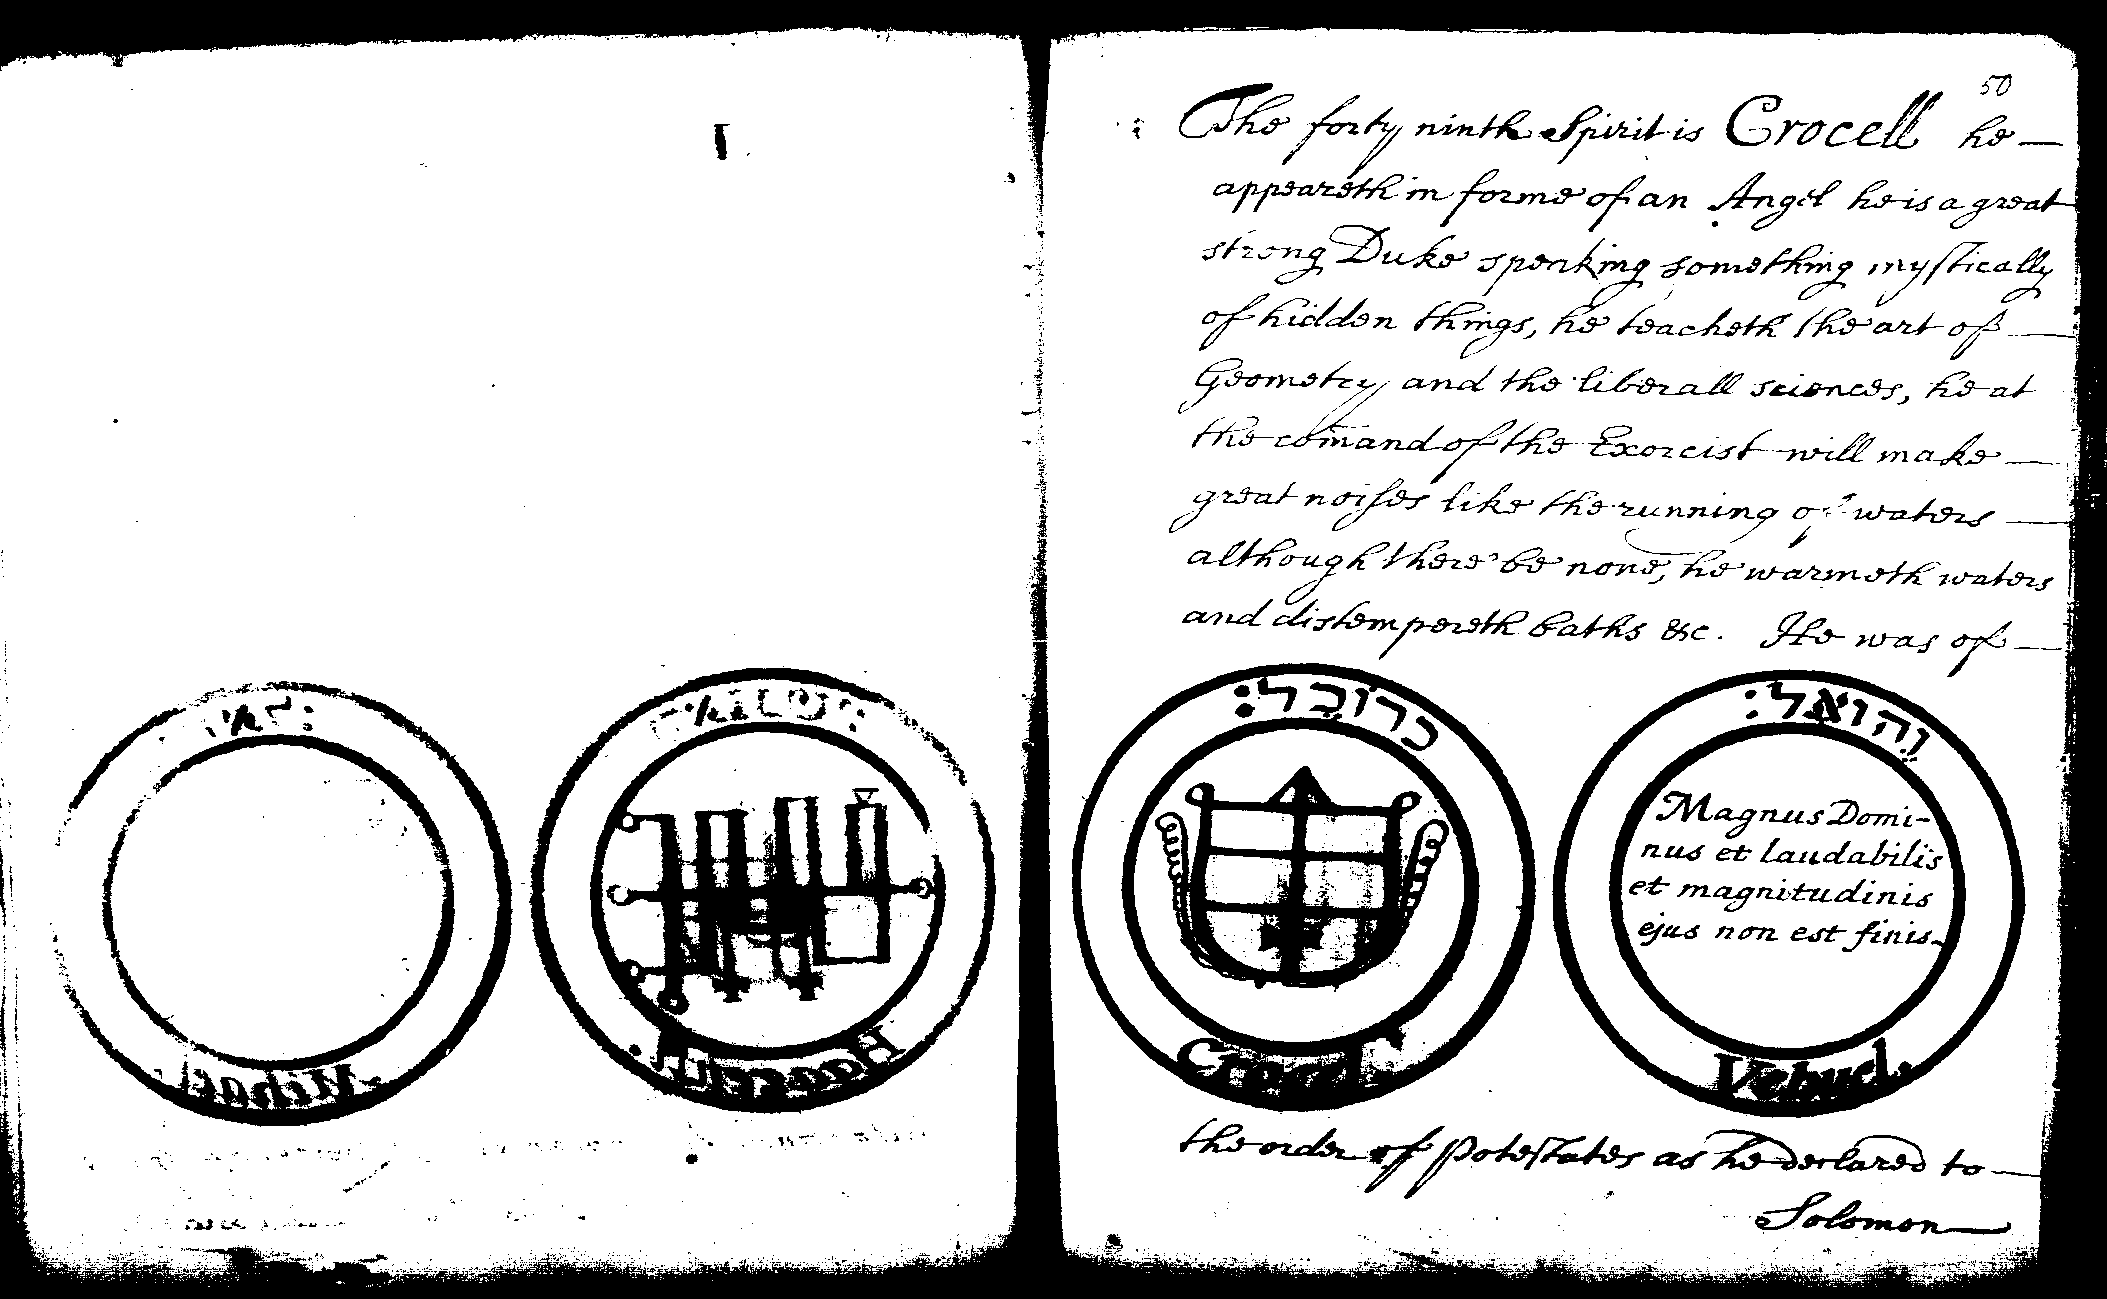 50
The forty ninth Spirit is Crocell he
appeareth in forme of an Angel he is a great
strong Duke speaking something mystically
of hidden things, he teacheth the art of
Geometry and the liberall sciences, he at
the comand of the Exorcist will make
great noises like the running of waters
although there be none, he warmeth waters
and distempereth baths &c. He was of
כרוכל:
והואל:
Magnus Domi-
nus et laudabilis
et magnitudinis
ejus non est finis.
Crocel.
Vehuel.
the order of Potestates as he declared to
Solomon